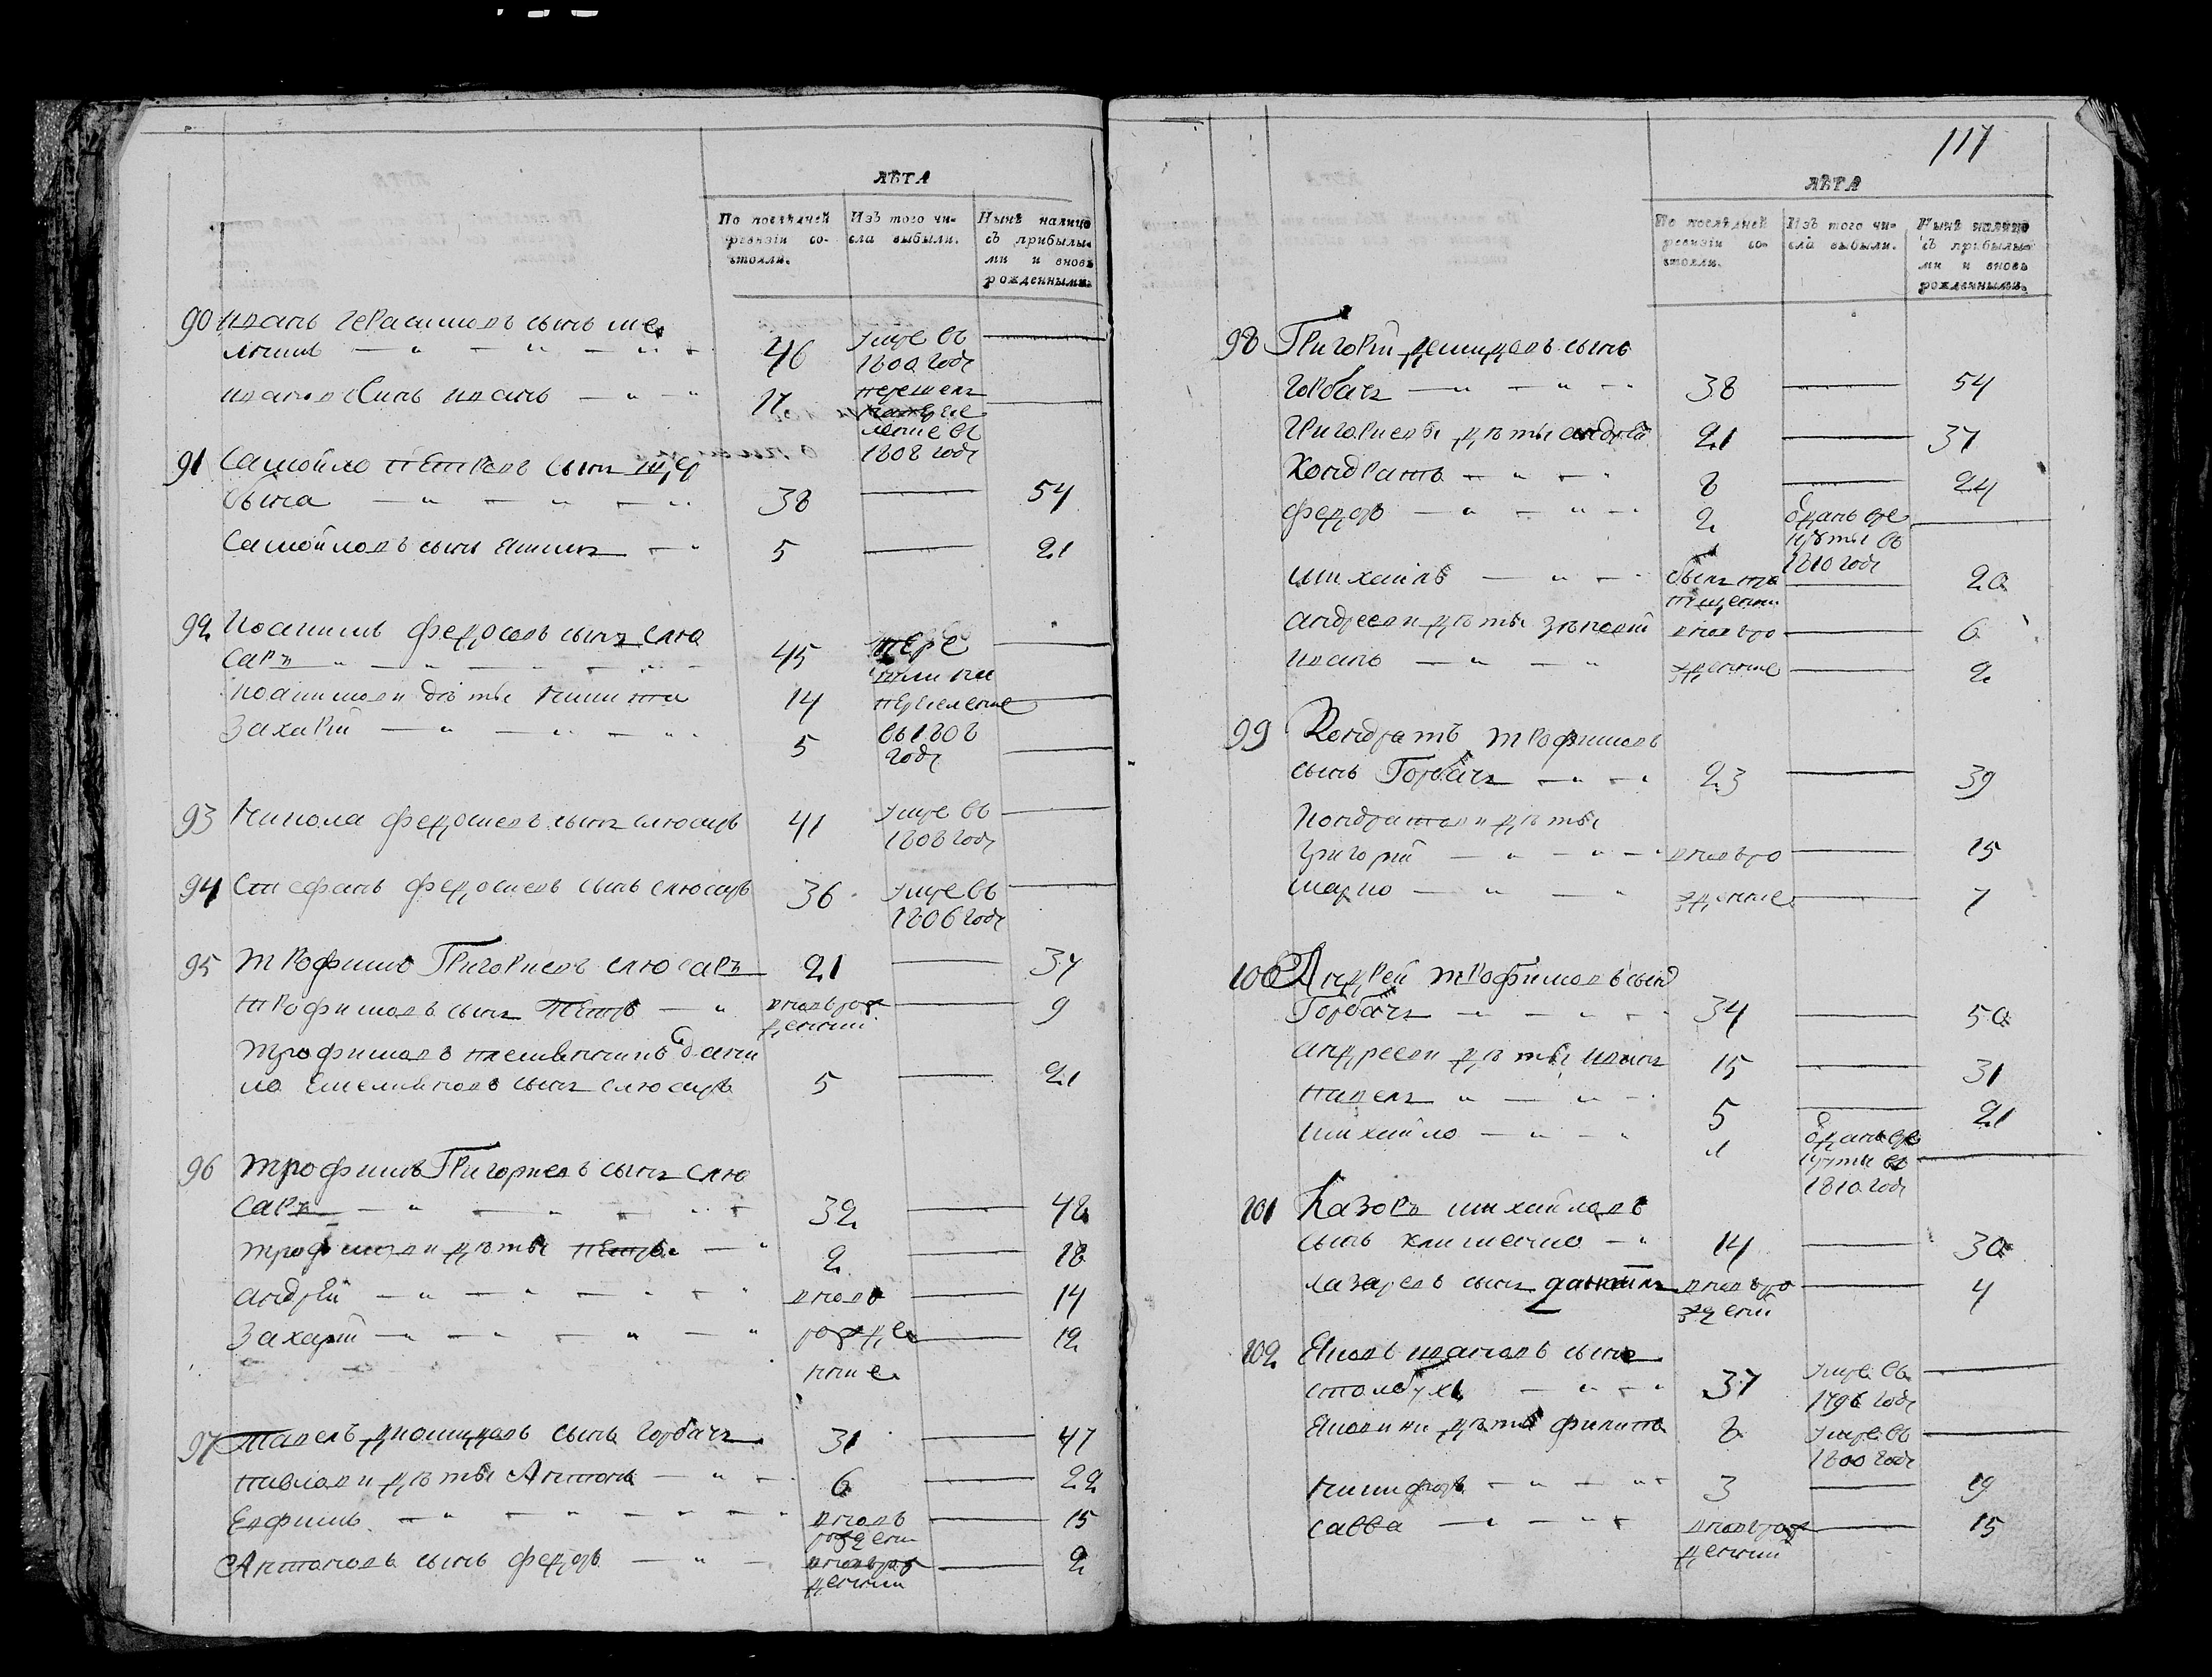 ЛѢТА
По послѣдней ревизіи состояли.
Изъ того числа выбыли.
Нынѣ налицо съ прибылыми и вновь рожденными.
90 иванъ герасимовъ сынъ
46 умре въ 1800 годꙋ
ивановъ сынъ иванъ 17 1808 годꙋ
91 Самойло петровъ сынъ щер
бына 38 54
Самойловъ сынъ 5 21
92 иоакимъ федосовъ сынъ слю
саръ 45 пере
иоакимови дѣти никита 14
Захарій 5 въ 1808 годꙋ
93 Никола федосиевъ сынъ слюсаръ 41 умре въ 1808 годꙋ
94 Стефанъ федосиевъ сынъ слюсаръ 36 умре въ 1806 годꙋ
95 трофимъ Григориевъ слюсаръ 21 37
трофимовъ сынъ петръ вновьрожденний 9
трофимовъ племѣнникъ дани
ло Емелияновъ сынъ слюсаръ 5 21
96 трофимъ Григориевъ сынъ слю
саръ 32 48
трофимови дѣти петръ 2 18
андрѣй вновь 14
Захарій рожде 12
ние
97 павелъ диомидовъ сынъ горбачъ 31 47
павлови дѣти Антонъ 6 22
Ефимъ вновь рождени 15
Антоновъ сынъ федоръ вновьрожденни 2
117
ЛѢТА
По послѣдней ревизіи состояли.
Изъ того числа выбыли.
Нынѣ налицо съ прибылыми и вновь рожденными.
98 Григорій демидовъ сынъ
горбачъ 38 54
Григориеви дѣти андрѣй 21 37
Кондратъ 8 24
федоръ 2 ѿданъ въ рекруты въ 1810 годꙋ
михаилъ былъ пропищенни 20
андрееви дѣти вновьро 6
иванъ жденние 2
99 Кондратъ трофимовъ
сынъ Горбачъ 23 39
Кондратови дѣти
григорій вновьро 15
марко жденние 7
100 Андрей трофимовъ сынъ
Горбачъ 34 50
андрееви дѣти иванъ 15 31
павелъ 5 21
михайло 1 ѿданъ в рекруты въ 1810 годꙋ
101 Лазоръ михайловъ
сынъ клименко 14 30
лазаревъ сынъ данiилъ вновьрожденій 4
102 Яковъ ивановъ сынъ
столбуха 37 умре въ 1796 годꙋ
Яковини дѣти филипъ 8 умре въ 1800 годꙋ
никифоръ 3 19
савва вновьрожденний 15